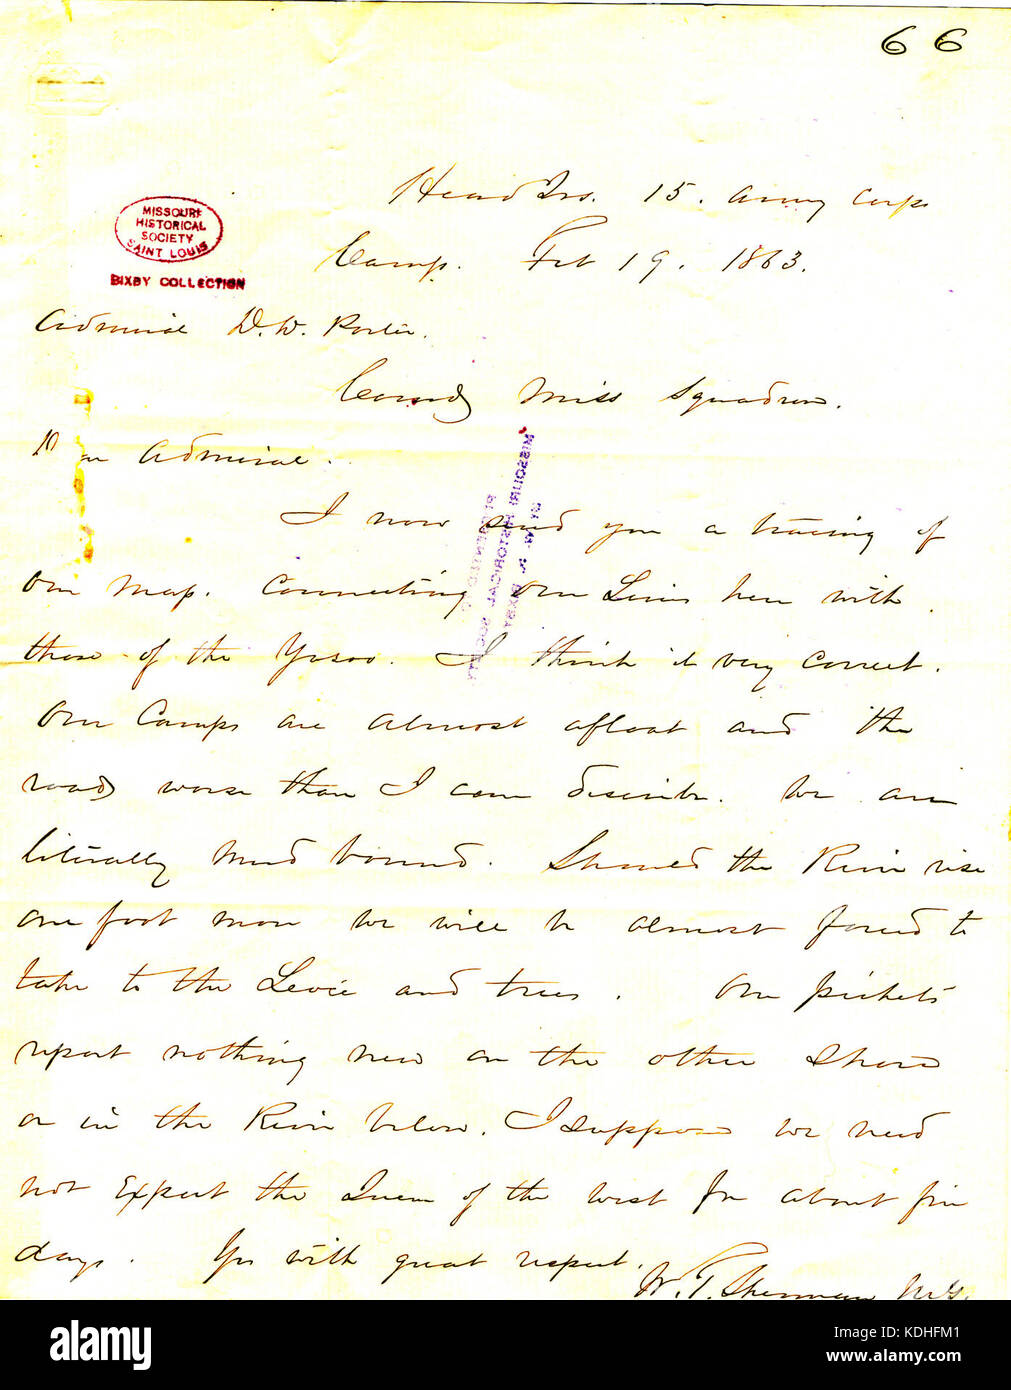 66
Head Qrs. 15. Army Corps
Camp. Feb 19. 1863.
MISSOURI
HISTORICAL
SOCIETY
SAINT LOUIS
BIXBY COLLECTION
Admiral D. W. Porter.
Comdg Miss Squadron.
Dear Admiral.
I now send you a tracing of
our map. Connecting our Lines here with
those of the Yazoo. I think it very correct.
Our Camps are almost afloat and the
roads worse than I can describe. We are
literally mud bound. Should the River rise
one foot more we will be almost forced to
take to the Levee and trees. Our pickets
report nothing new on the other shore
or in the River below. I suppose we need
not Expect the Queen of the West for about five
days. Yrs with great respect.
W. T. Sherman
MISSOURI HISTORICAL SOCIETY
BIXBY
alamy
Image ID: KDHFM1
www.alamy.com